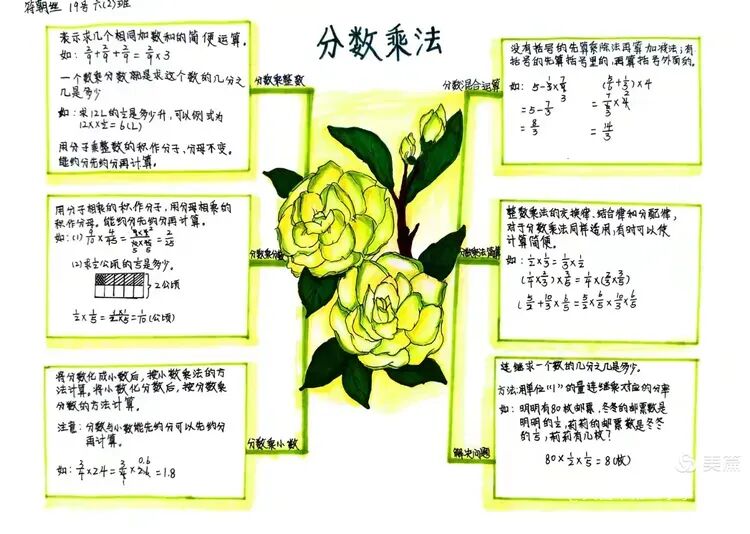 符朝煃 19号 六(2)班
分数乘法
表示求几个相同加数和的简便运算。
如: 2/9+2/9+2/9=2/9×3
一个数乘分数就是求这个数的几分之
几是多少
如:求12L的1/2是多少升,可以例式为
12×1/2=6(L)
用分子乘整数的积作分子,分母不变。
能约分先约分再计算。
分数乘整数
用分子相乘的积作分子,用分母相乘的
积作分母。能约分先约分再计算。
如:(1)
(2)求1/2公顷的1/5是多少。
2公顷
=1/10(公顷)
将分数化成小数后,按小数乘法的方
法计算。将小数化分数后,按分数乘
分数的方法计算。
注意:分数与小数能先约分可以先约分
再计算。
如: 3/4×2.4= =1.8
分数乘小数
没有括号的先算乘除法再算加减法;有
括号的先算括号里的,再算括号外面的。
如: 5-
=5-7/3
=8/3
(5/6+1/3)×4
=14/3
分数混合运算
整数乘法的交换律、结合律和分配律,
对于分数乘法同样适用,有时可以使
计算简便。
如: 1/2×1/3=1/3×1/2
(1/4×2/3)×3/5=1/4×(2/3×3/5)
分数乘法简算
连继求一个数的几分之几是多少。
方法:用单位“1”的量连继乘对应的分率
如:明明有80枚邮票,冬冬的邮票数是
明明的1/2,莉莉的邮票数是冬冬
的1/5,莉莉有几枚?
80×1/2×1/5=8(枚)
解决问题
美篇